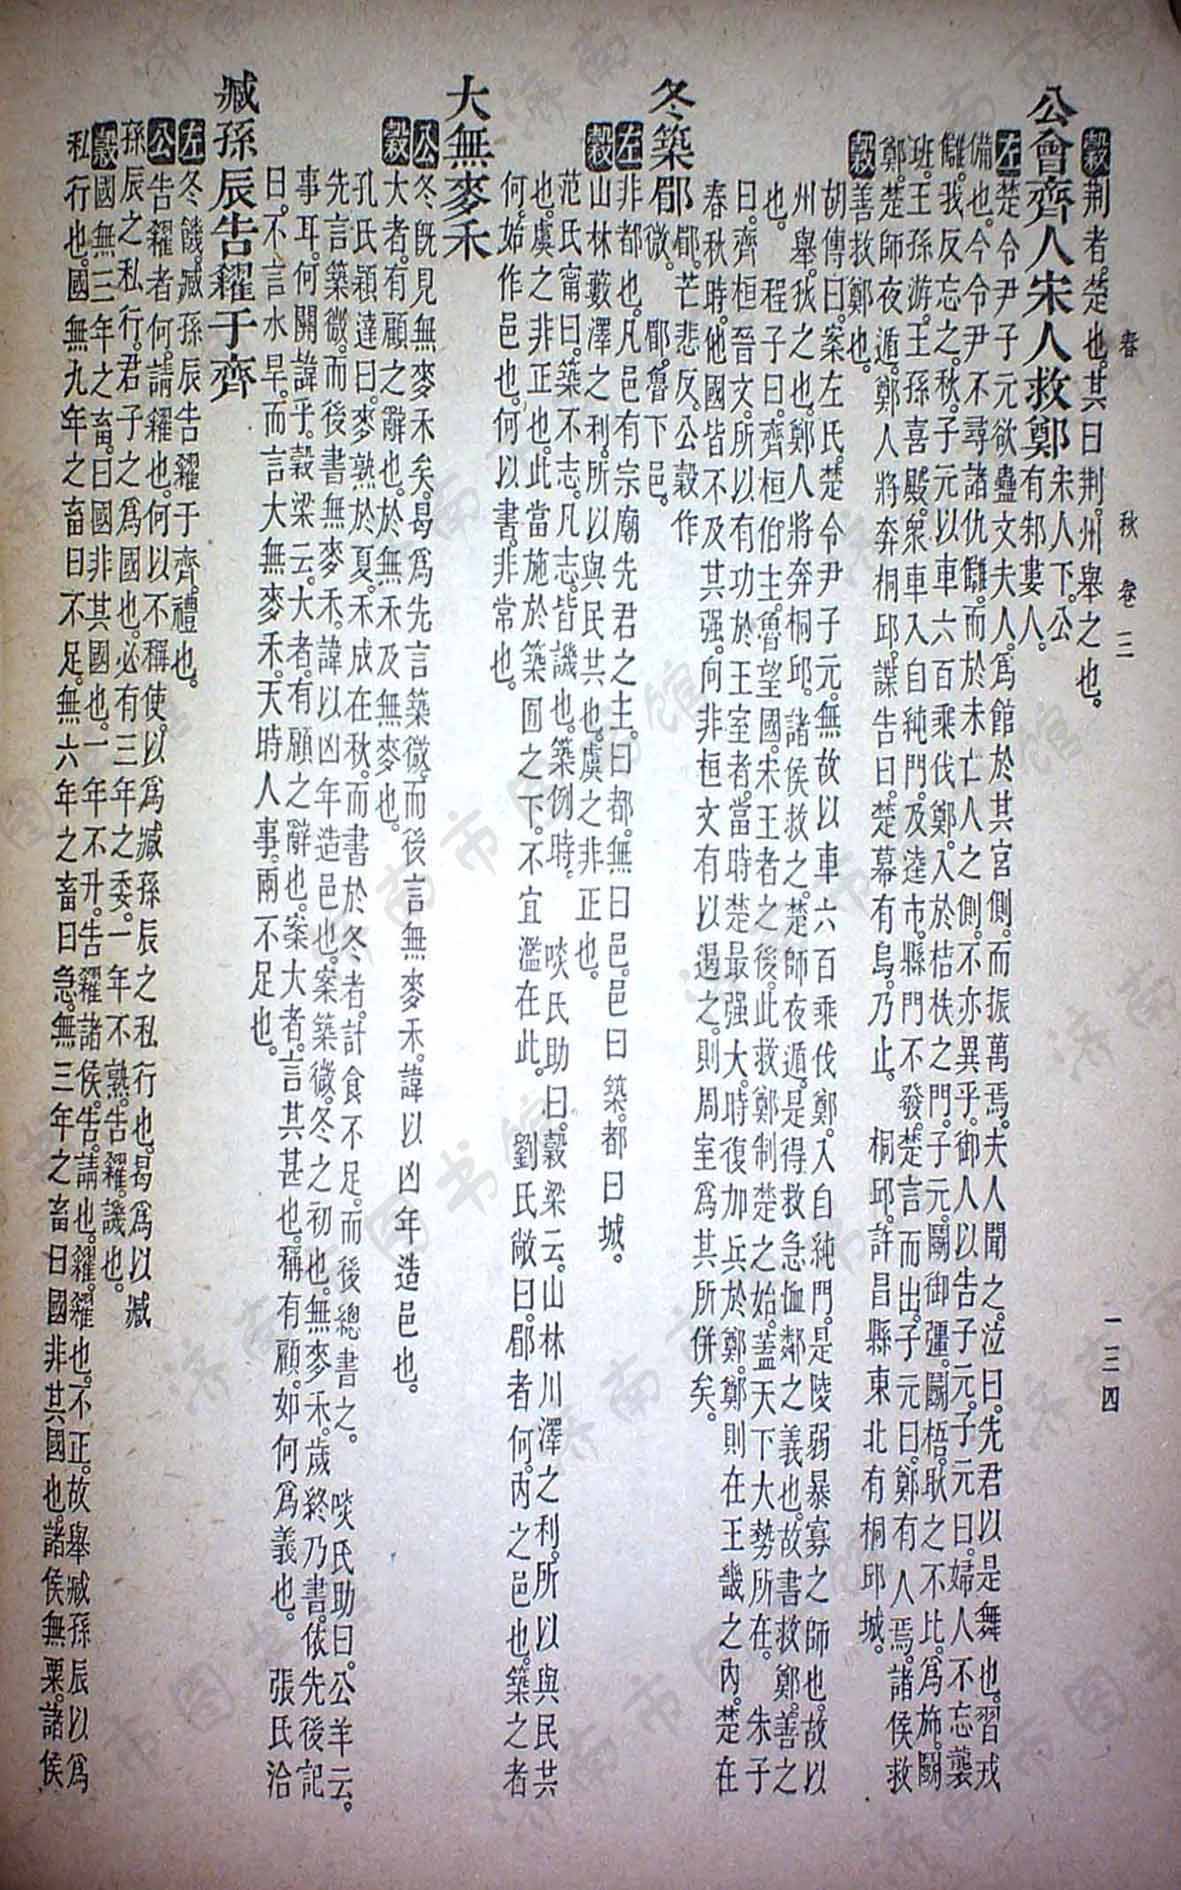 春秋 卷三 一三四
穀荆者。楚也。其曰荆。州舉之也。
公會齊人宋人救鄭宋人下。公有邾婁人。
左楚令尹子元欲蠱文夫人。爲館於其宮側。而振萬焉。夫人聞之。泣曰。先君以是舞也。習戎
備也。今令尹不尋諸仇讎。而於未亡人之側。不亦異乎。御人以告子元。子元曰。婦人不忘襲
讎。我反忘之。秋。子元以車六百乘伐鄭。入於桔柣之門。子元。鬭御彊。鬭梧。耿之不比。爲旆。鬭
班。王孫游。王孫喜殿。衆車入自純門。及逵市。縣門不發。楚言而出。子元曰。鄭有人焉。諸侯救
鄭。楚師夜遁。鄭人將奔桐邱。諜告曰。楚幕有烏。乃止。 桐邱。許昌縣東北有桐邱城。
穀善救鄭也。
胡傳曰。案左氏。楚令尹子元。無故以車六百乘伐鄭。入自純門。是陵弱暴寡之師也。故以
州舉。狄之也。鄭人將奔桐邱。諸侯救之。楚師夜遁。是得救急恤鄰之義也。故書救鄭。善之
也。 程子曰。齊桓伯主。魯望國。宋王者之後。此救鄭制楚之始。蓋天下大勢所在。 朱子
曰。齊桓晉文。所以有功於王室者。當時楚最强大。時復加兵於鄭。鄭則在王畿之內。楚在
春秋時。他國皆不及其强。向非桓文有以遏之。則周室爲其所併矣。
冬築郿郿。芒悲反。公穀作微。 郿。魯下邑。
左非都也。凡邑有宗廟先君之主。曰都。無曰邑。邑曰築。都曰城。
穀山林藪澤之利。所以與民共也。虞之非正也。
范氏甯曰。築不志。凡志。皆譏也。築例時。 啖氏助曰。穀梁云。山林川澤之利。所以與民共
也。虞之非正也。此當施於築囿之下。不宜濫在此。 劉氏敞曰。郿者何。內之邑也。築之者
何。始作邑也。何以書。非常也。
大無麥禾
公冬旣見無麥禾矣。曷爲先言築微。而後言無麥禾。諱以凶年造邑也。
穀大者。有顧之辭也。於無禾及無麥也。
孔氏穎達曰。麥熟於夏。禾成在秋。而書於冬者。計食不足。而後總書之。 啖氏助曰。公羊云。
先言築微。而後書無麥禾。諱以凶年造邑也。案築微。冬之初也。無麥禾。歲終乃書。依先後記
事耳。何關諱乎。穀梁云。大者。有顧之辭也。案大者。言其甚也。稱有顧。如何爲義也。 張氏洽
曰。不言水旱。而言大無麥禾。天時人事。兩不足也。
臧孫辰告糴于齊
左冬饑。臧孫辰告糴于齊。禮也。
公告糴者何。請糴也。何以不稱使。以爲臧孫辰之私行也。曷爲以臧
孫辰之私行。君子之爲國也。必有三年之委。一年不熟。告糴。譏也。
穀國無三年之畜。曰國非其國也。一年不升。告糴諸侯。告。請也。糴。糴也。不正。故舉臧孫辰以爲
私行也。國無九年之畜曰不足。無六年之畜曰急。無三年之畜曰國非其國也。諸侯無粟。諸侯